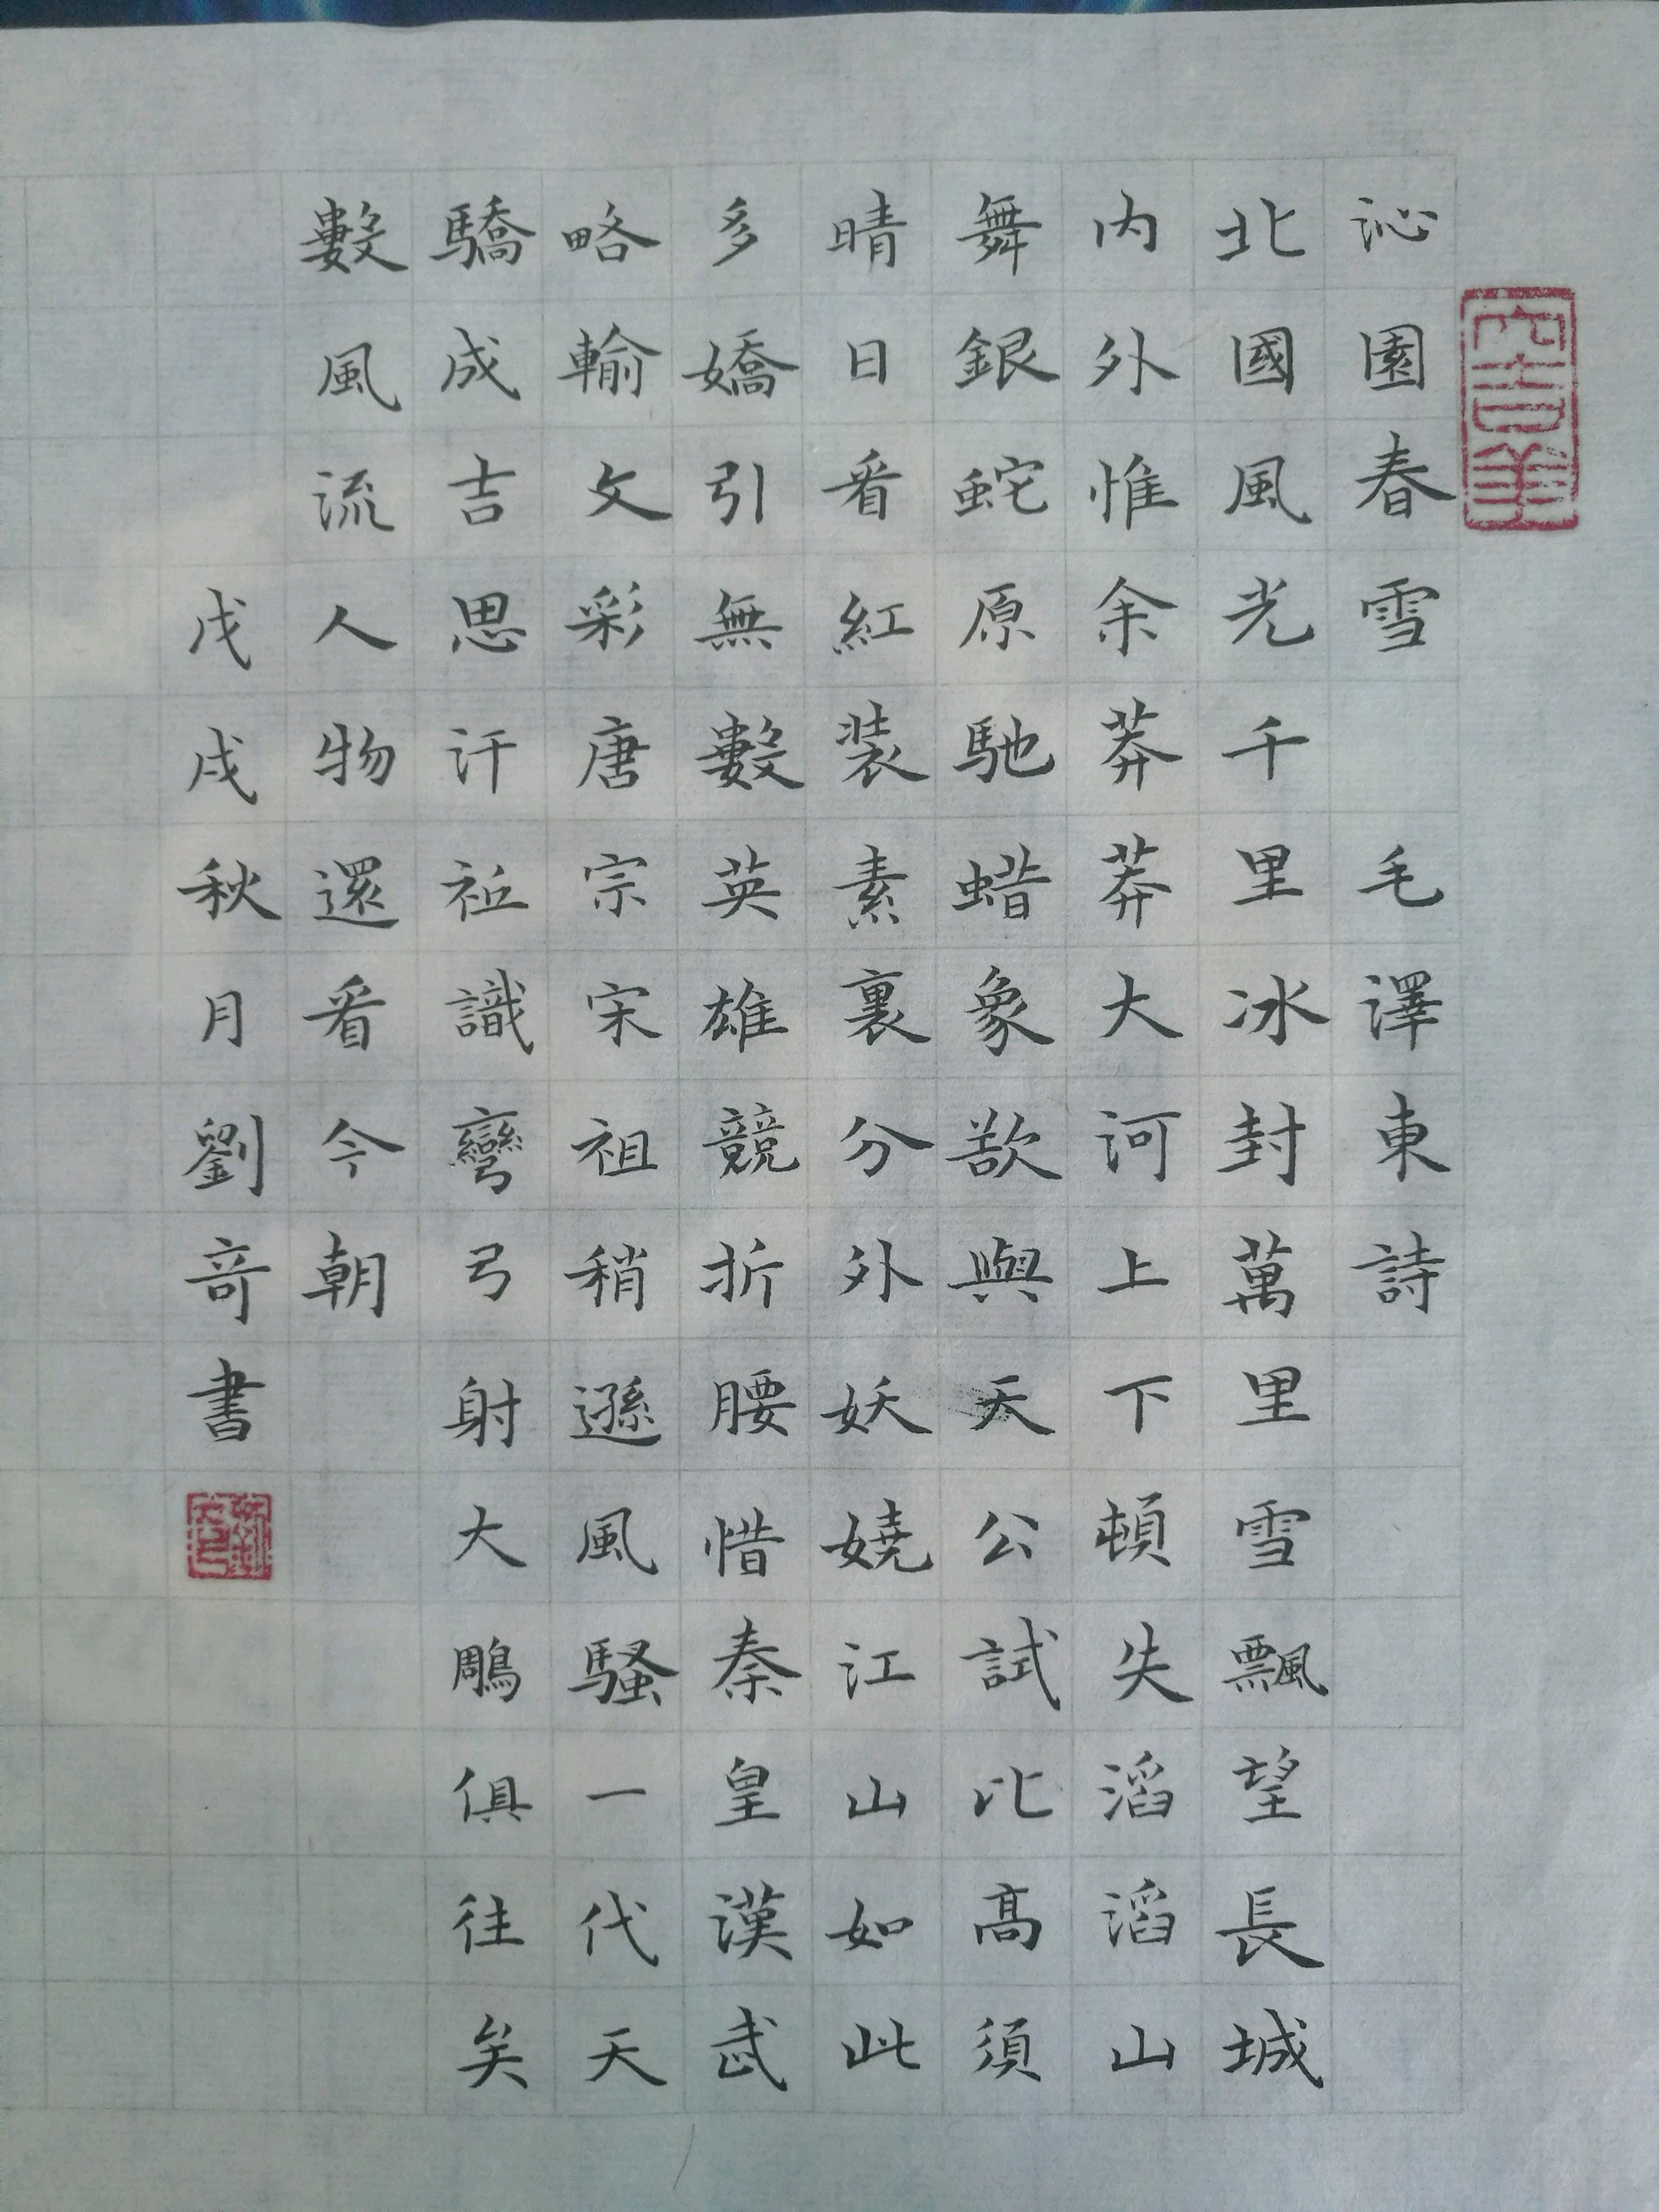 沁園春雪 毛澤東詩
北國風光千里冰封萬里雪飄望長城
内外惟余莽莽大河上下頓失滔滔山
舞銀蛇原馳蜡象欲與天公試比高須
晴日看紅装素裏分外妖嬈江山如此
多嬌引無數英雄競折腰惜秦皇漢武
略輸文彩唐宗宋祖稍遜風騷一代天
驕成吉思汗祗識彎弓射大鵰俱往矣
數風流人物還看今朝
戊戌秋月劉奇書